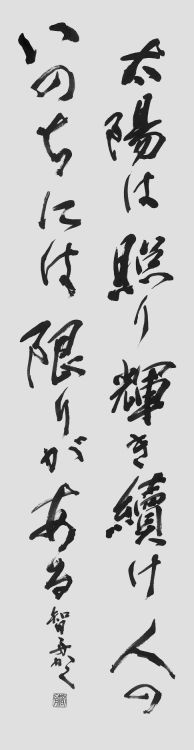 太陽は照り輝き續け人の
いのちには限りがある
智舟かく